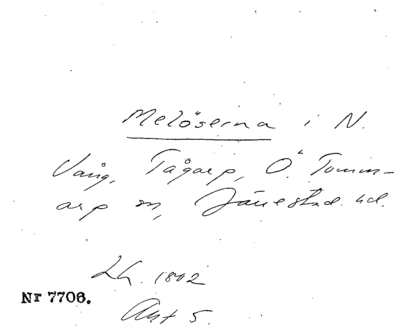 Melöserna i N.
Vång, Tågarp, Ö. Tomm-
arp m, Järrestad hd.
Lh. 1802
Nr 7706.
Akt 5.